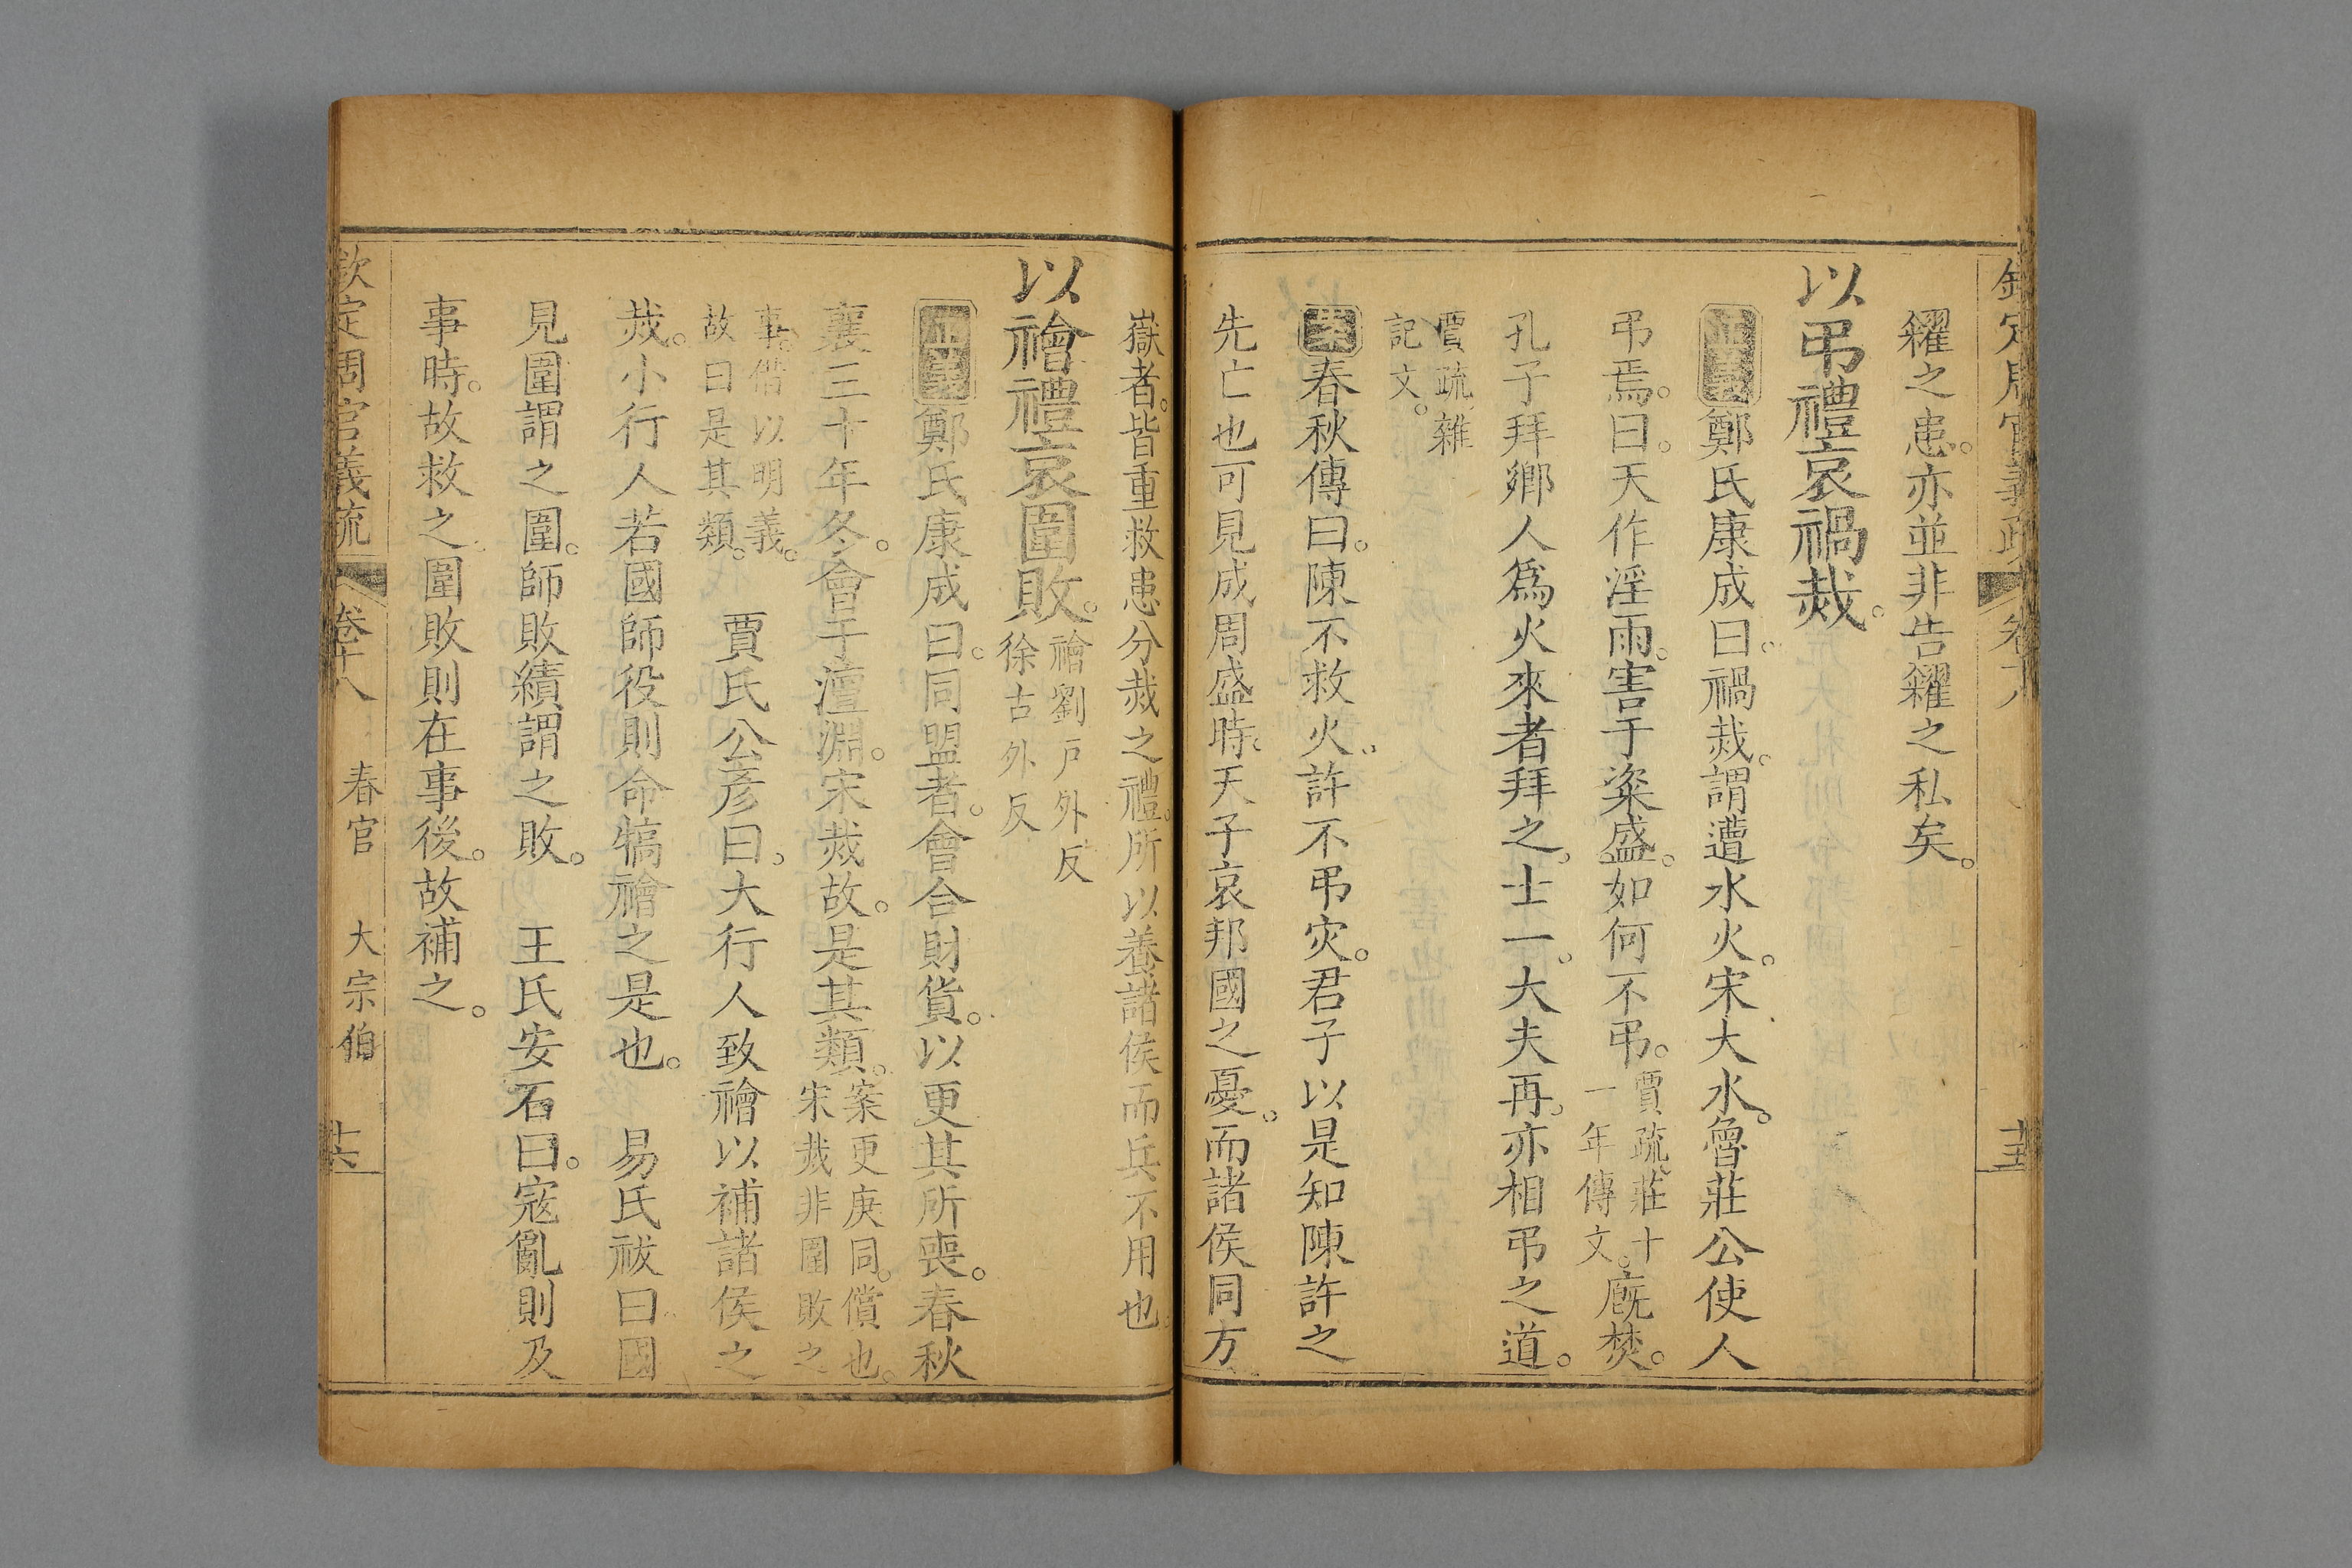 欽定周官義疏 卷十八
糴之患。亦並非告糴之私矣。
以弔禮哀禍烖。
正義鄭氏康成曰。禍烖。謂遭水火。宋大水。魯莊公使人
弔焉。曰。天作淫雨。害于粢盛。如何不弔。賈疏。莊十一年傳文。廐焚。
孔子拜鄉人爲火來者拜之。士一。大夫再。亦相弔之道。
賈疏。雜記文。
案春秋傳曰。陳不救火。許不弔災。君子以是知陳許之
先亡也可見成周盛時。天子哀邦國之憂。而諸侯同方
嶽者。皆重救患分烖之禮。所以養諸侯而兵不用也。
以禬禮哀圍敗。禬劉戸外反徐古外反
正義鄭氏康成曰。同盟者。會合財貨。以更其所喪。春秋
襄三十年冬。會于澶淵。宋烖故。是其類。案更庚同。償也。宋烖非圍敗之
事。借以明義。故曰是其類。 賈氏公彦曰。大行人致禬以補諸侯之
烖。小行人若國師役則命犒禬之是也。 易氏祓曰國
見圍謂之圍。師敗績謂之敗。 王氏安石曰。寇亂則及
事時。故救之圍敗則在事後。故補之。
欽定周官義疏 卷十八 春官 大宗伯 十六